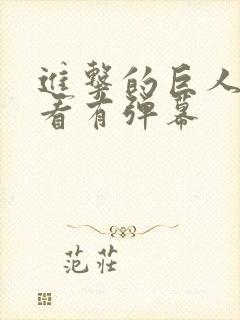 進撃的巨人
看有彈幕
范莊